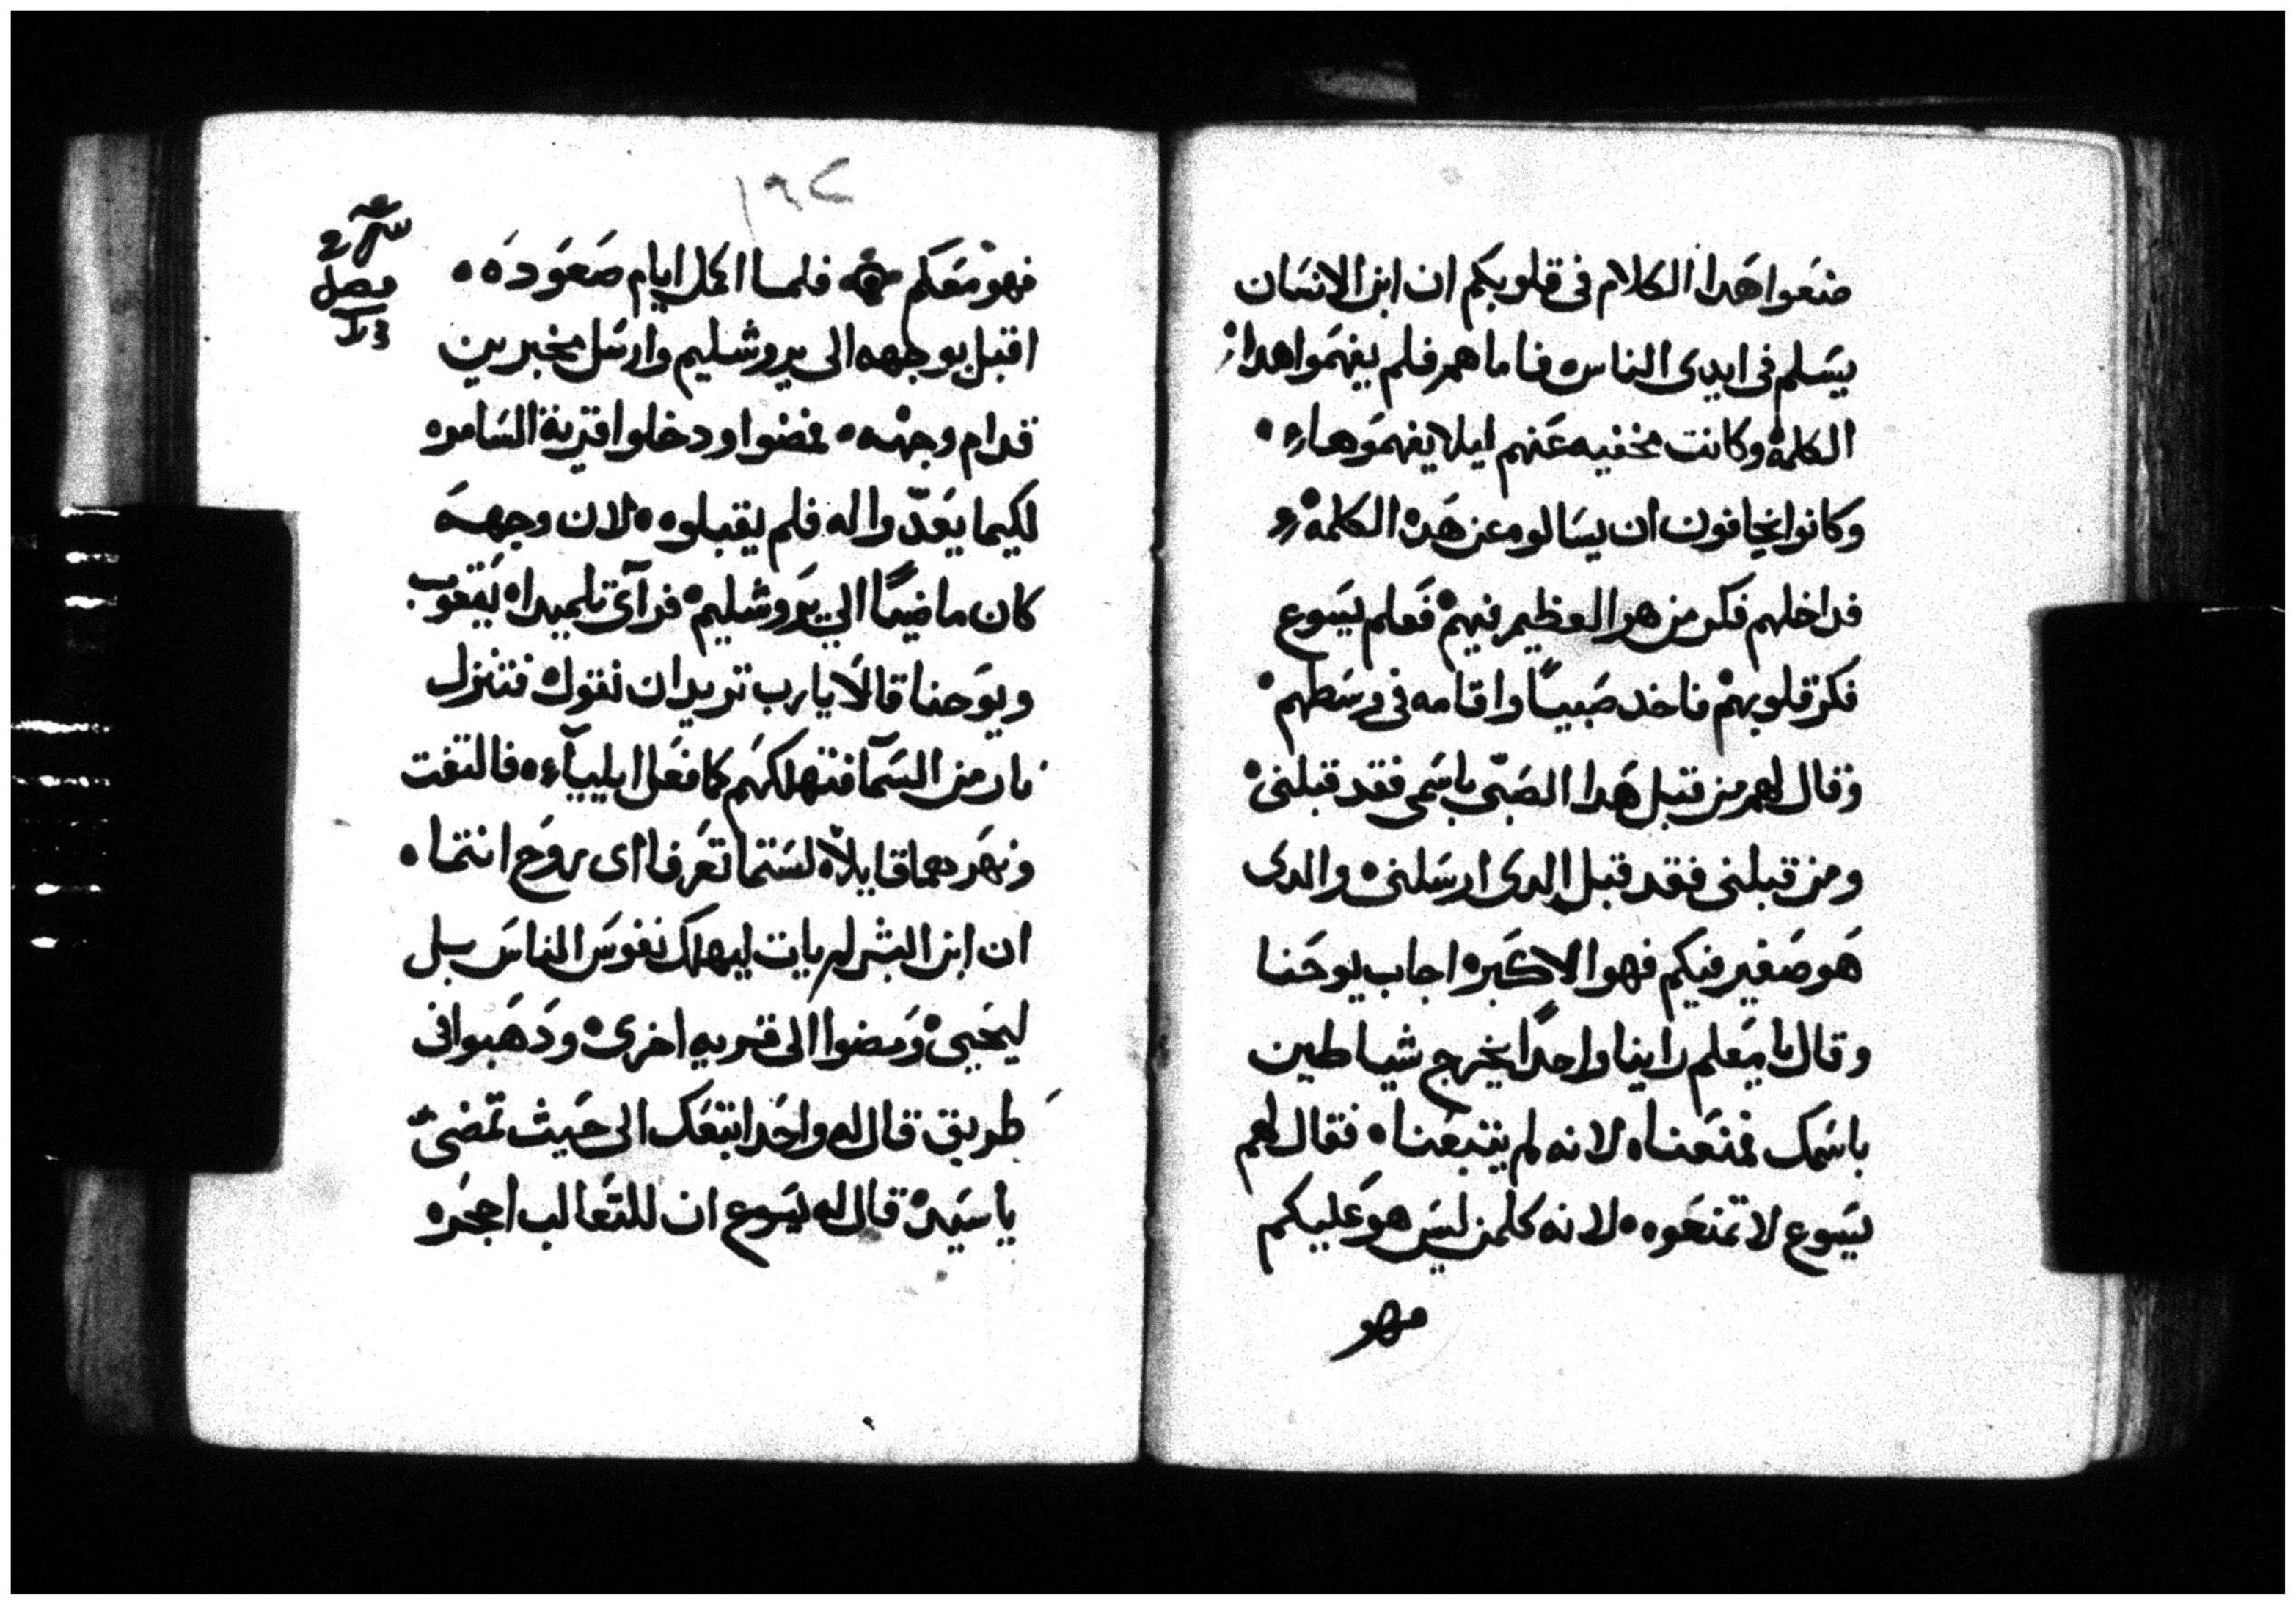 ضعوا هدا الكلام فى قلوبكم ان ابن الانسان
يسلم فى ايدى الناس فاما هم فلم يفهموا هدا
الكلمة وكانت مخفيه عنهم ليلا يفهموها
وكانوا يخافون ان يسالوه عن هده الكلمة
فداخلهم فكر من هو العظيم فيهم فعلم يسوع
فكر قلوبهم فاخد صبيا واقامه فى وسطهم
وقال لهم من قبل هدا الصبى باسمى فقد قبلنى
ومن قبلنى فقد قبل الدى ارسلنى والدى
هو صغير فيكم فهوا الاكبر اجاب يوحنا
وقال يا معلم راينا واحدا يخرج شياطين
باسمك فمنعناه لانه لم يتبعنا فقال لهم
يسوع لا تمنعوه لانه كلمن ليس هو عليكم
فهو
١٩٢
فهو معكم فلما اكمل ايام صعوده
اقبل بوجهه الى يروشليم وارسل مخبرين
قدام وجهه فمضوا ودخلوا قرية السامره
لكيما يعدوا له فلم يقبلوه لان وجهه
كان ماضيا الي يروشليم فرآى تلميداه يعقوب
ويوحنا قالا يا رب تريد ان نقول فتنزل
نار من السما فتهلكهم كما فعل ايلياء فالتفت
ونهرهما قايلا لستما تعرفا اى روح انتما
ان ابن البشر لم يات ليهلك نفوس الناس بل
ليحيى ومضوا الى قريه اخرى ودهبوا فى
طريق قال له واحد اتبعك الى حيث تمضى
يا سيد قال له يسوع ان للتعالب اجحره
فصل